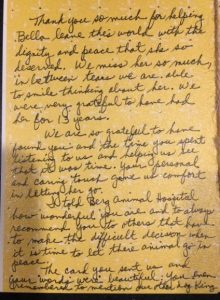 Thank you so much for helping
Bella leave this world with the
dignity and peace that she so
deserved. We miss her so much,
in between tears we are able
to smile thinking about her. We
were very grateful to have had
her for 13 years.
We are so grateful to have
found you and the time you spent
listening to us and helping us see
that it was time. Your personal
and caring touch gave us comfort
in letting her go.
I told Berg Animal Hospital
how wonderful you are and to always
recommend you to others that have
to make the difficult decision when
it is time to let there animal go in
peace.
The card you sent us and
your words were beautiful. You even
remembered to mention our other dog King